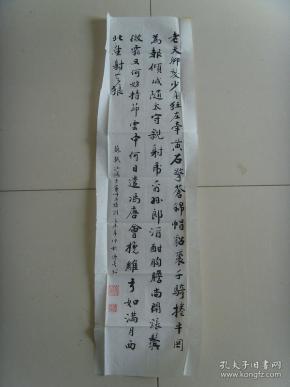 老夫聊發少年狂左牽黃右擎蒼錦帽貂裘千騎捲平岡
為報傾城隨太守親射虎看孫郎酒酣胸膽尚開張鬢
微霜又何妨持節雲中何日遣馮唐會挽雕弓如滿月西
北望射天狼
蘇軾江城子
孔夫子旧书网